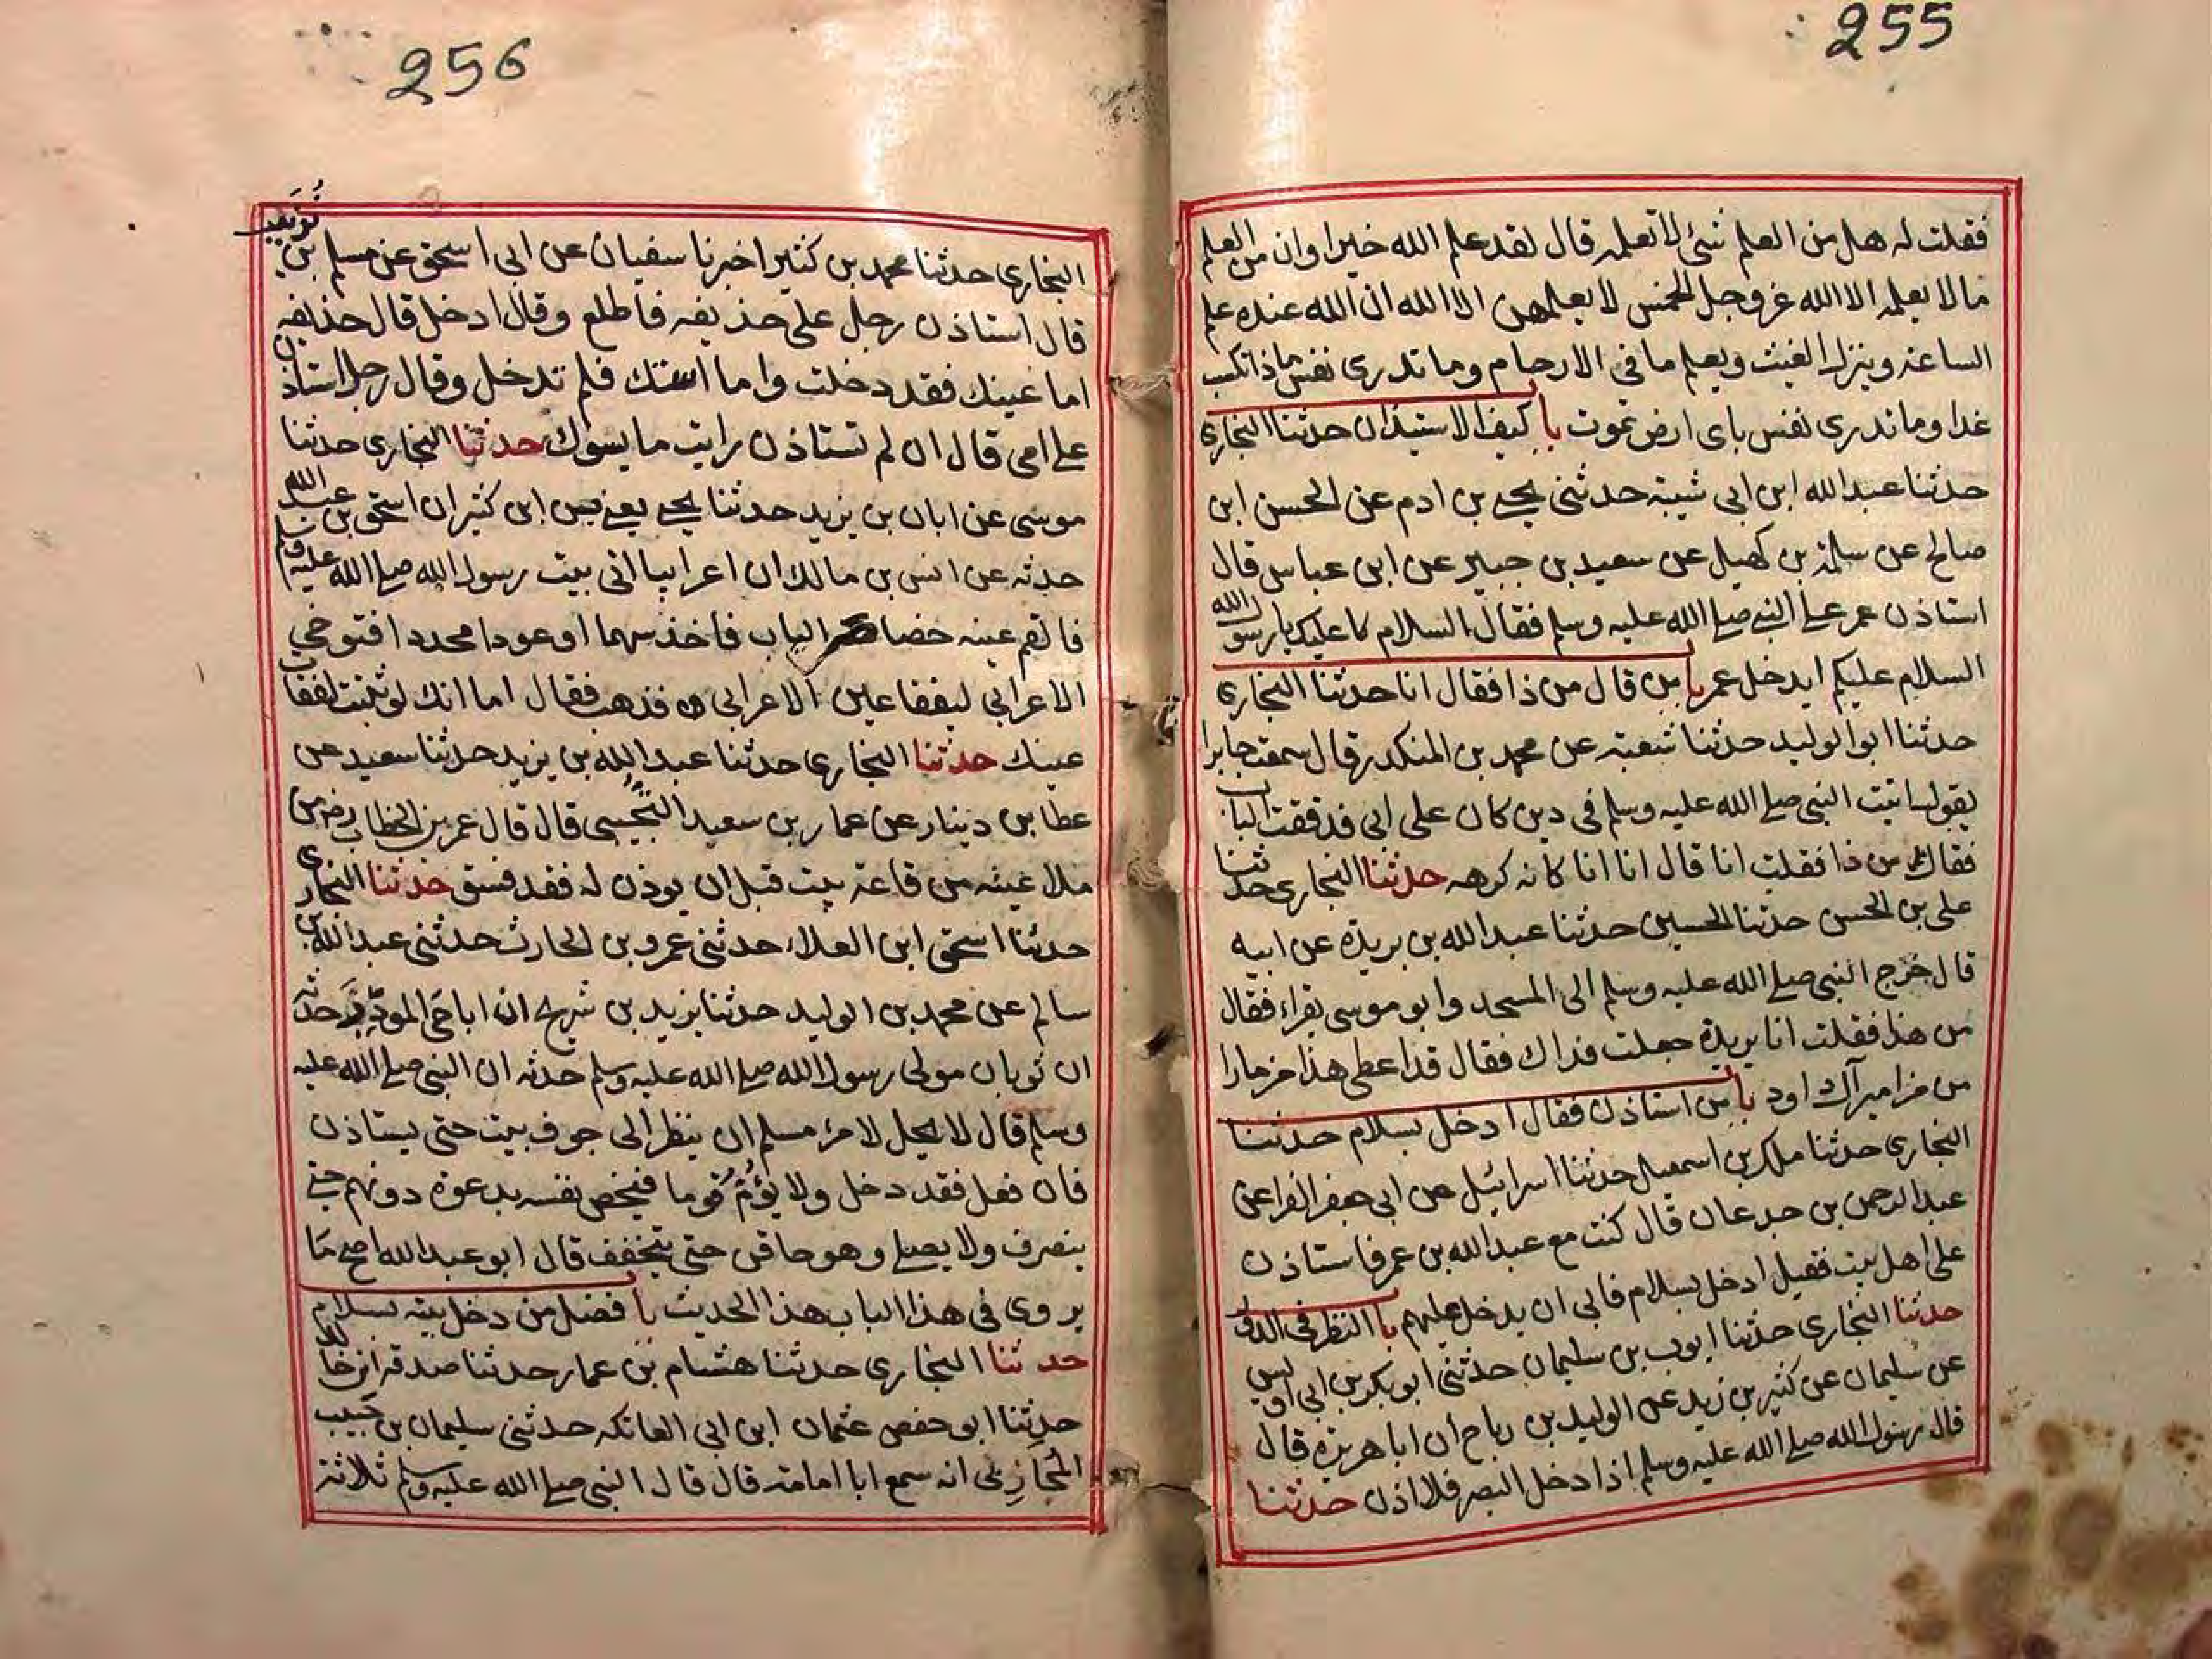 255
فقلت له هل من العلم شئ لا تعلمه قال لقد علم الله خيرا وان من العلم
ما لا يعلمه الا الله عز وجل الخمس لا يعلمهن الا الله ان الله عنده علم
الساعة وينزل الغيث ويعلم ما في الارحام وما تدرى نفس ماذا تكسب
غدا وما تدرى نفس باى ارض تموت با كيف الاستيذان حدثنا البخارى
حدثنا عبد الله ابن ابى شيبة حدثنى يحيى بن ادم عن الحسن ابن
صالح عن سلمة بن كهيل عن سعيد بن جبير عن ابن عباس قال
استاذن عمر على النبى صلى الله عليه وسلم فقال السلام عليك يا رسول الله
السلام عليكم ايدخل عمر با من قال من ذا فقال انا حدثنا البخارى
حدثنا ابو الوليد حدثنا شعبة عن محمد بن المنكدر قال سمعت جابرا
يقول اتيت النبى صلى الله عليه وسلم فى دين كان على ابى فدققت الباب
فقال من ذا فقلت انا قال انا انا كانه كرهه حدثنا البخارى حدثنا
على بن الحسن حدثنا الحسين حدثنا عبد الله بن بريدة عن ابيه
قال خرج النبى صلى الله عليه وسلم الى المسجد وابو موسى يقراء فقال
من هذا فقلت انا بريدة جعلت فداك فقال قد اعطى هذا مزمارا
من مزامير آل داود با من استاذن فقال ادخل بسلام حدثنا
البخارى حدثنا ملك بن اسمعيل حدثنا اسرائيل عن ابى جعفر الفرا عن
عبد الرحمن بن جدعان قال كنت مع عبد الله بن عمر فاستاذن
على اهل بيت فقيل ادخل بسلام فابى ان يدخل عليهم با النظر فى الدور
حدثنا البخارى حدثنا ايوب بن سليمان حدثنى ابو بكر بن ابى اويس
عن سليمان عن كثير بن زيد عن الوليد بن رباح ان ابا هريرة قال
قال رسول الله صلى الله عليه وسلم اذا دخل البصر فلا اذن حدثنا
256
البخارى حدثنا محمد بن كثير اخبرنا سفيان عن ابى اسحق عن مسلم بن
قال استاذن رجل على حذيفه فاطلع وقال ادخل قال حذيفه
اما عينك فقد دخلت واما استك فلم تدخل وقال رجل استاذن
على امى قال ان لم تستاذن رايت ما يسوك حدثنا البخارى حدثنا
موسى عن ابان بن يزيد حدثنا يحيى يعنى ابن كثير ان اسحق بن عبد الله
حدثه عن انس بن مالك ان اعرابيا اتى بيت رسول الله صلى الله عليه وسلم
فالقم عينه خصاص الباب فاخذ سهما او عودا محددا فتوخى
الاعرابى ليفقا عين الاعرابى فذهب فقال اما انك لو ثبت لفقات
عينك حدثنا البخارى حدثنا عبد الله بن يزيد حدثنا سعيد عن
عطا بن دينار عن عمار بن سعيد التجيبى قال قال عمر بن الخطاب رض من
ملا عينه من قاعة بيت قبل ان يوذن له فقد فسق حدثنا البخارى
حدثنا اسحق ابن العلاء حدثنى عمرو بن الحارث حدثنى عبد الله بن
سالم عن محمد بن الوليد حدثنا يزيد بن شريح ان ابا حى الموذن حدثه
ان ثوبان مولى رسول الله صلى الله عليه وسلم حدثه ان النبى صلى الله عليه
وسلم قال لا يحل لامرء مسلم ان ينظر الى جوف بيت حتى يستاذن
فان فعل فقد دخل ولا يؤم قوما فيخص نفسه بدعوة دونهم حتى
ينصرف ولا يصلى وهو حاقن حتى يتخفف قال ابو عبد الله اصح ما
يروى فى هذا الباب هذا الحديث با فضل من دخل بيته بسلام
حدثنا البخارى حدثنا هشام بن عمار حدثنا صدقه ابن خالد
حدثنا ابو حفص عثمان ابن ابى العاتكه حدثنى سليمان بن حبيب
المحاربى انه سمع ابا امامة قال قال النبى صلى الله عليه وسلم ثلاثة